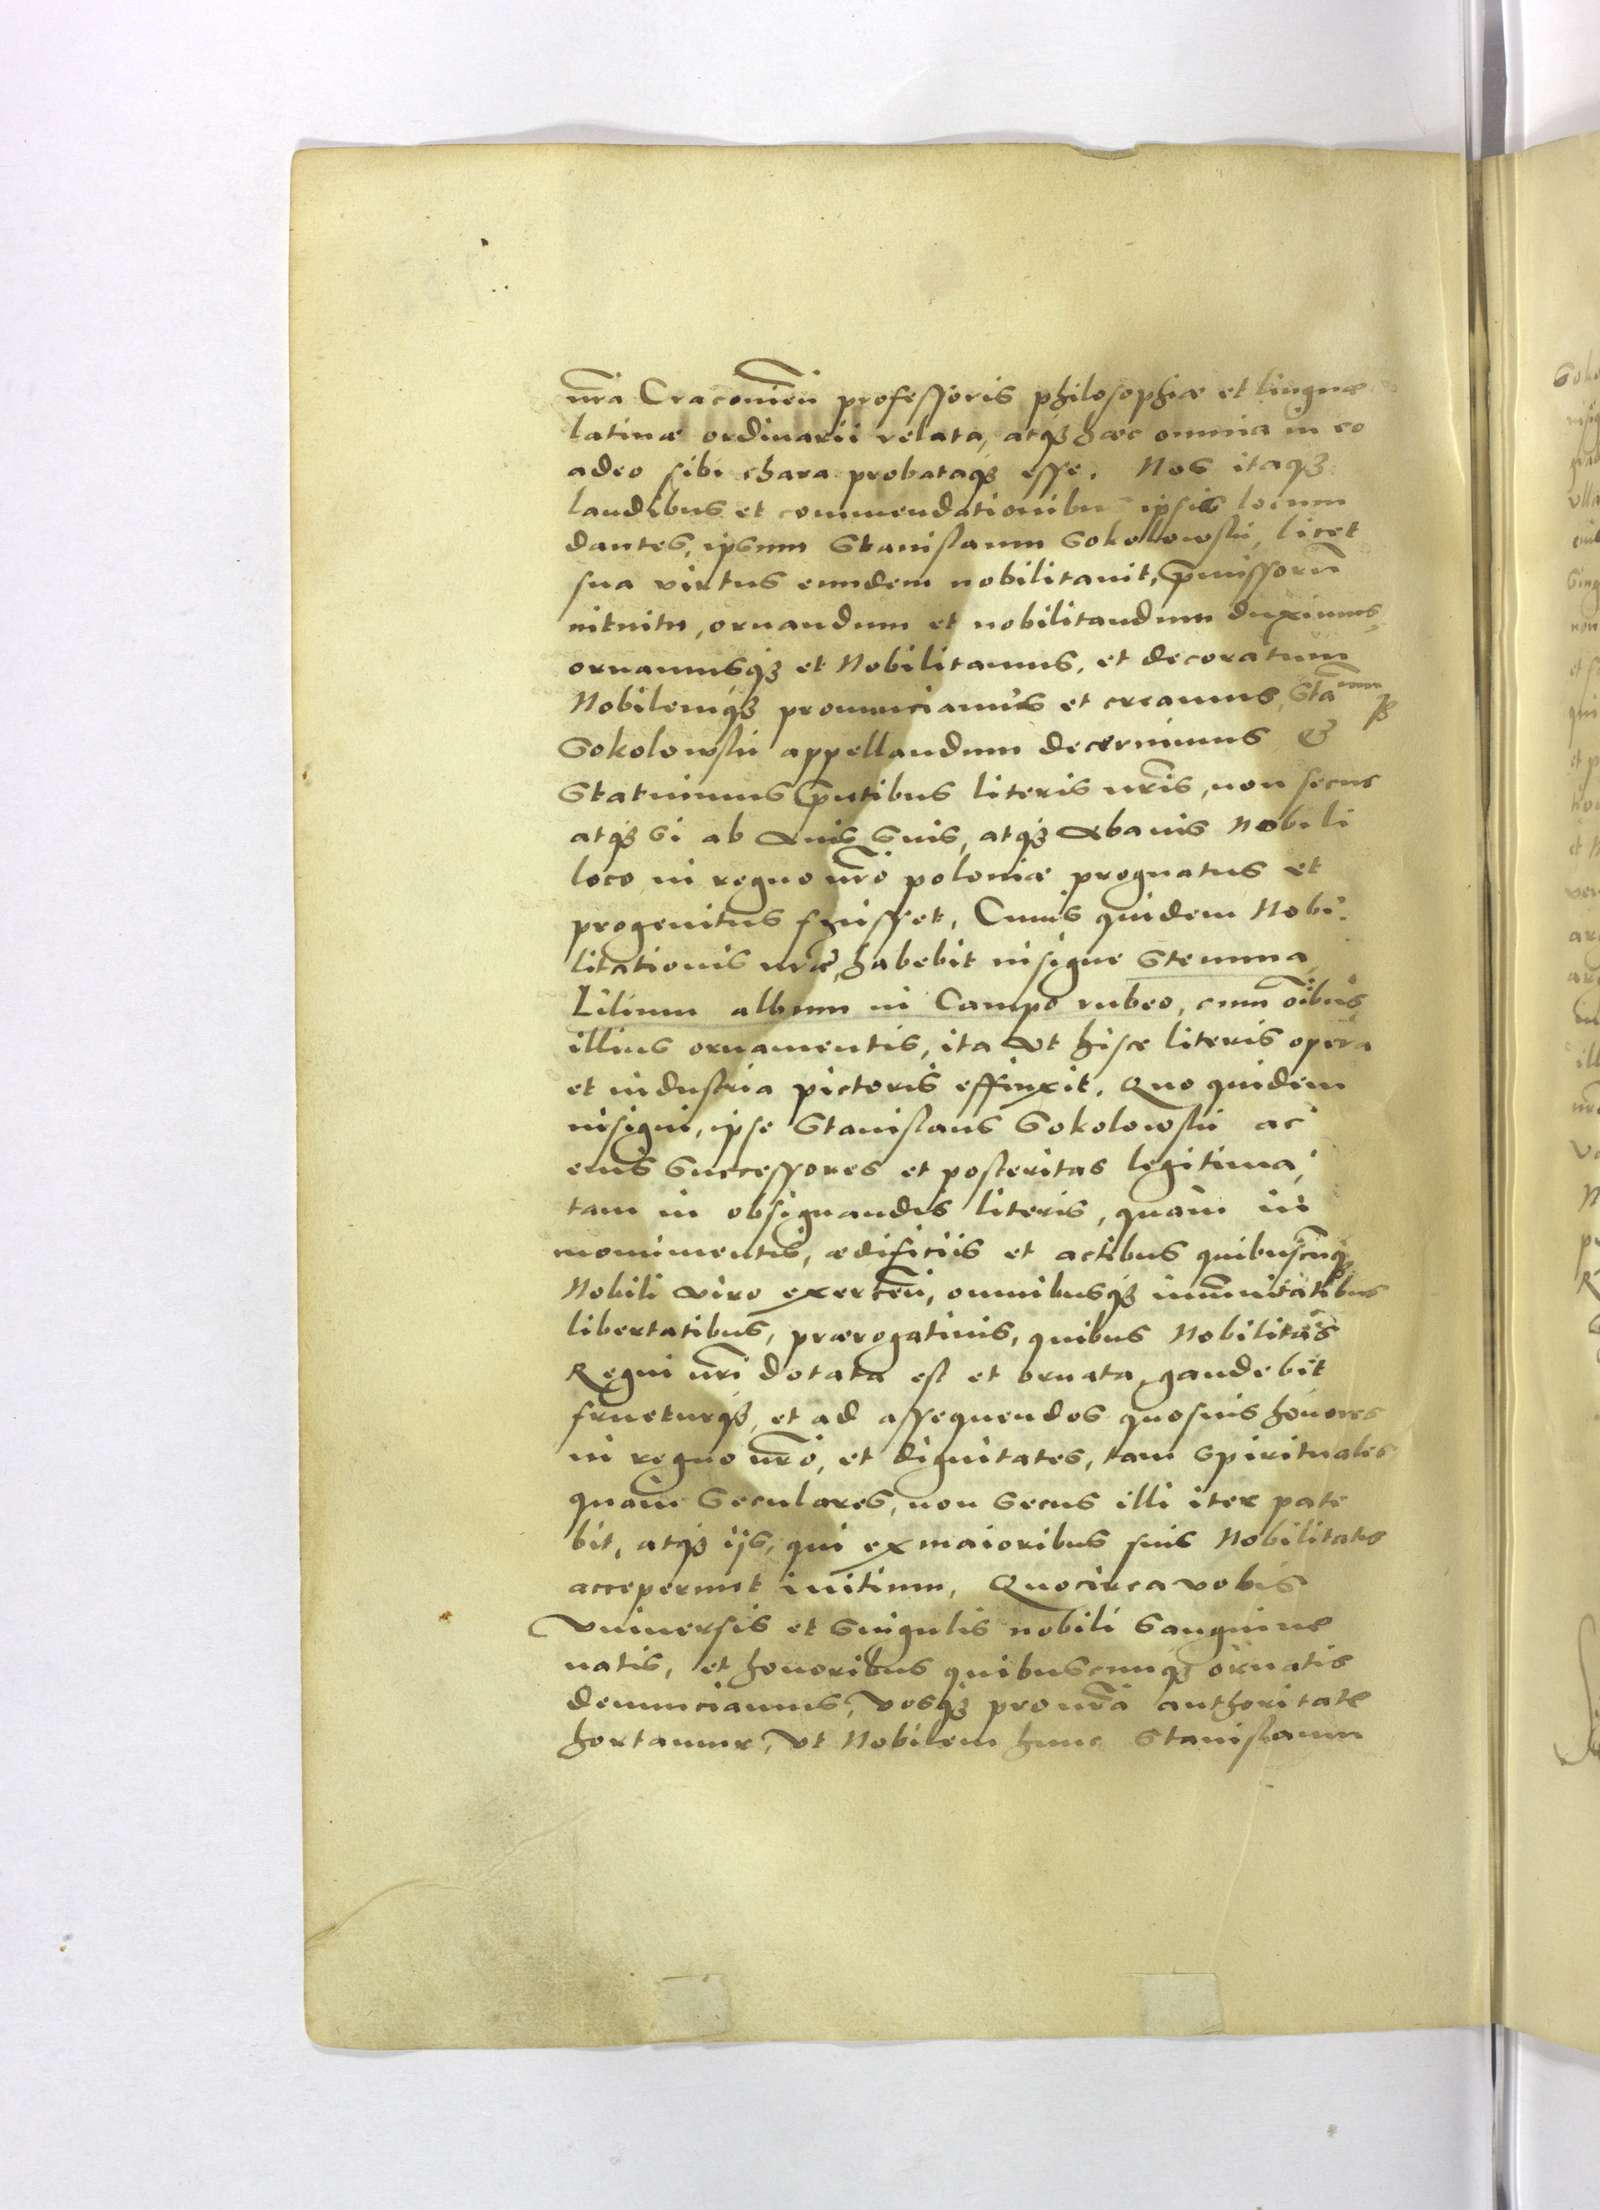 nr̃a Cracouieñ professoris philosophiæ et linguæ
latinæ ordinarii relata, atqʒ hæc omnia in eo
adeo sibi chara probataqʒ esse. Nos itaqʒ
laudibus et commendationibus ipsis locum
dantes, ipsum Stanislaum Sokolowski, licet
sua virtus eundem nobilitauit, p̃missorũ
intuitu, ornandum et nobilitandum duximus,
ornamusqʒ et Nobilitamus, et decoratum
Nobilemqʒ pronunciamus et creamus, Sta͠num
Sokolowski appellandum decernimus &
Statuimus p̃ntibus literis nr̃is, non secus
atqʒ si ab Auis suis, atqʒ Abauis Nobili
loco in regno nr̃o poloniæ prognatus et
progenitus fuisset, Cuius quidem Nobi-
litationis nr̃æ, habebit insigne Stemma
Lilium album in Campo rubeo, cum oĩbus
illius ornamentis, ita vt hisce literis opera
et industria pictoris effinxit. Quo quidem
insigni, ipse Stanislaus Sokolowski ac
eius Successores et posteritas legitima,
tam in obsignandis literis, quam in
monumentis, ædificiis et actibus quibuscũqʒ
Nobili viro exerceñ, omnibusqʒ im̃unitatibus
libertatibus, prærogatiuis, quibus Nobilitas
Regni nr̃i dotata est et ornata gaudebit
frueturqʒ, et ad assequendos quosuis honores
in regno nr̃o, et dignitates, tam Spirituales
quam Seculares, non Secus illi iter pate
bit, atqʒ ijs, qui ex maioribus suis Nobilitatis
acceperunt initium, Quocirca vobis
Vniuersis et Singulis nobili Sanguine
natis, et honoribus quibuscunqʒ ornatis
denunciamus, vosqʒ pro nr̃a authoritate
hortamur, vt Nobilem hunc Stanislaum